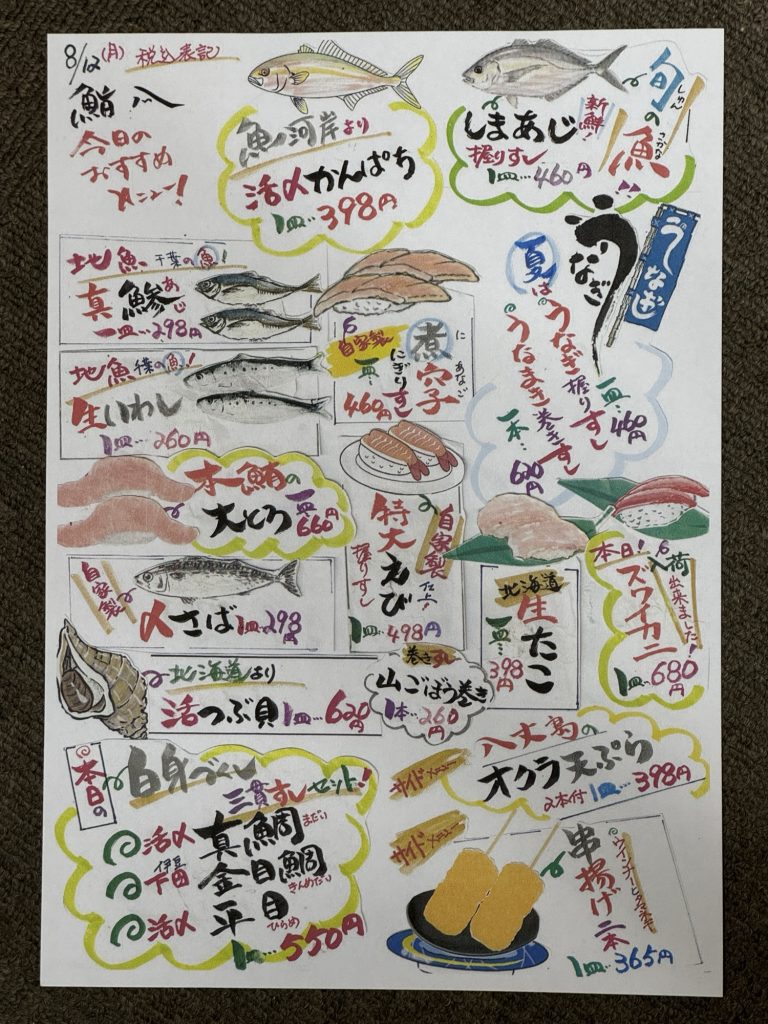 8/12(月) 税込表記
鮨八
今日の
おすすめ
メニュー!
魚河岸より
活〆かんぱち
1皿…398円
旬の魚
しゅん
さかな
新鮮!
しまあじ
握りすし
1皿…460円
うなぎ
うなぎ
夏は
うなぎ握りすし
一皿…460円
うなまき巻きすし
一本…620円
地魚 千葉の魚!
真鯵
あじ
一皿…298円
地魚 千葉の魚!
生いわし
1皿…260円
自家製
煮穴子
に
あなご
にぎりすし
一皿…460円
本鮪の
大とろ
一皿660円
自家製仕立!
特大えび
握りすし
1皿…498円
自家製
〆さば 1皿…298円
北海道
生たこ
一皿…398円
本日!入荷出来ました!
ズワイカニ
1皿…680円
北海道より
活つぶ貝 1皿…620円
巻きすし
山ごぼう巻き
1本…260円
本日の
白身づくし
三貫すしセット!
活〆 真鯛
まだい
伊豆
下田 金目鯛
きんめだい
活〆 平目
ひらめ
1皿…550円
サイドメニュー
八丈島の
オクラ天ぷら
2本付 1皿…398円
サイドメニュー
串揚げ二本
ウインナーとタマネギ
1皿…365円